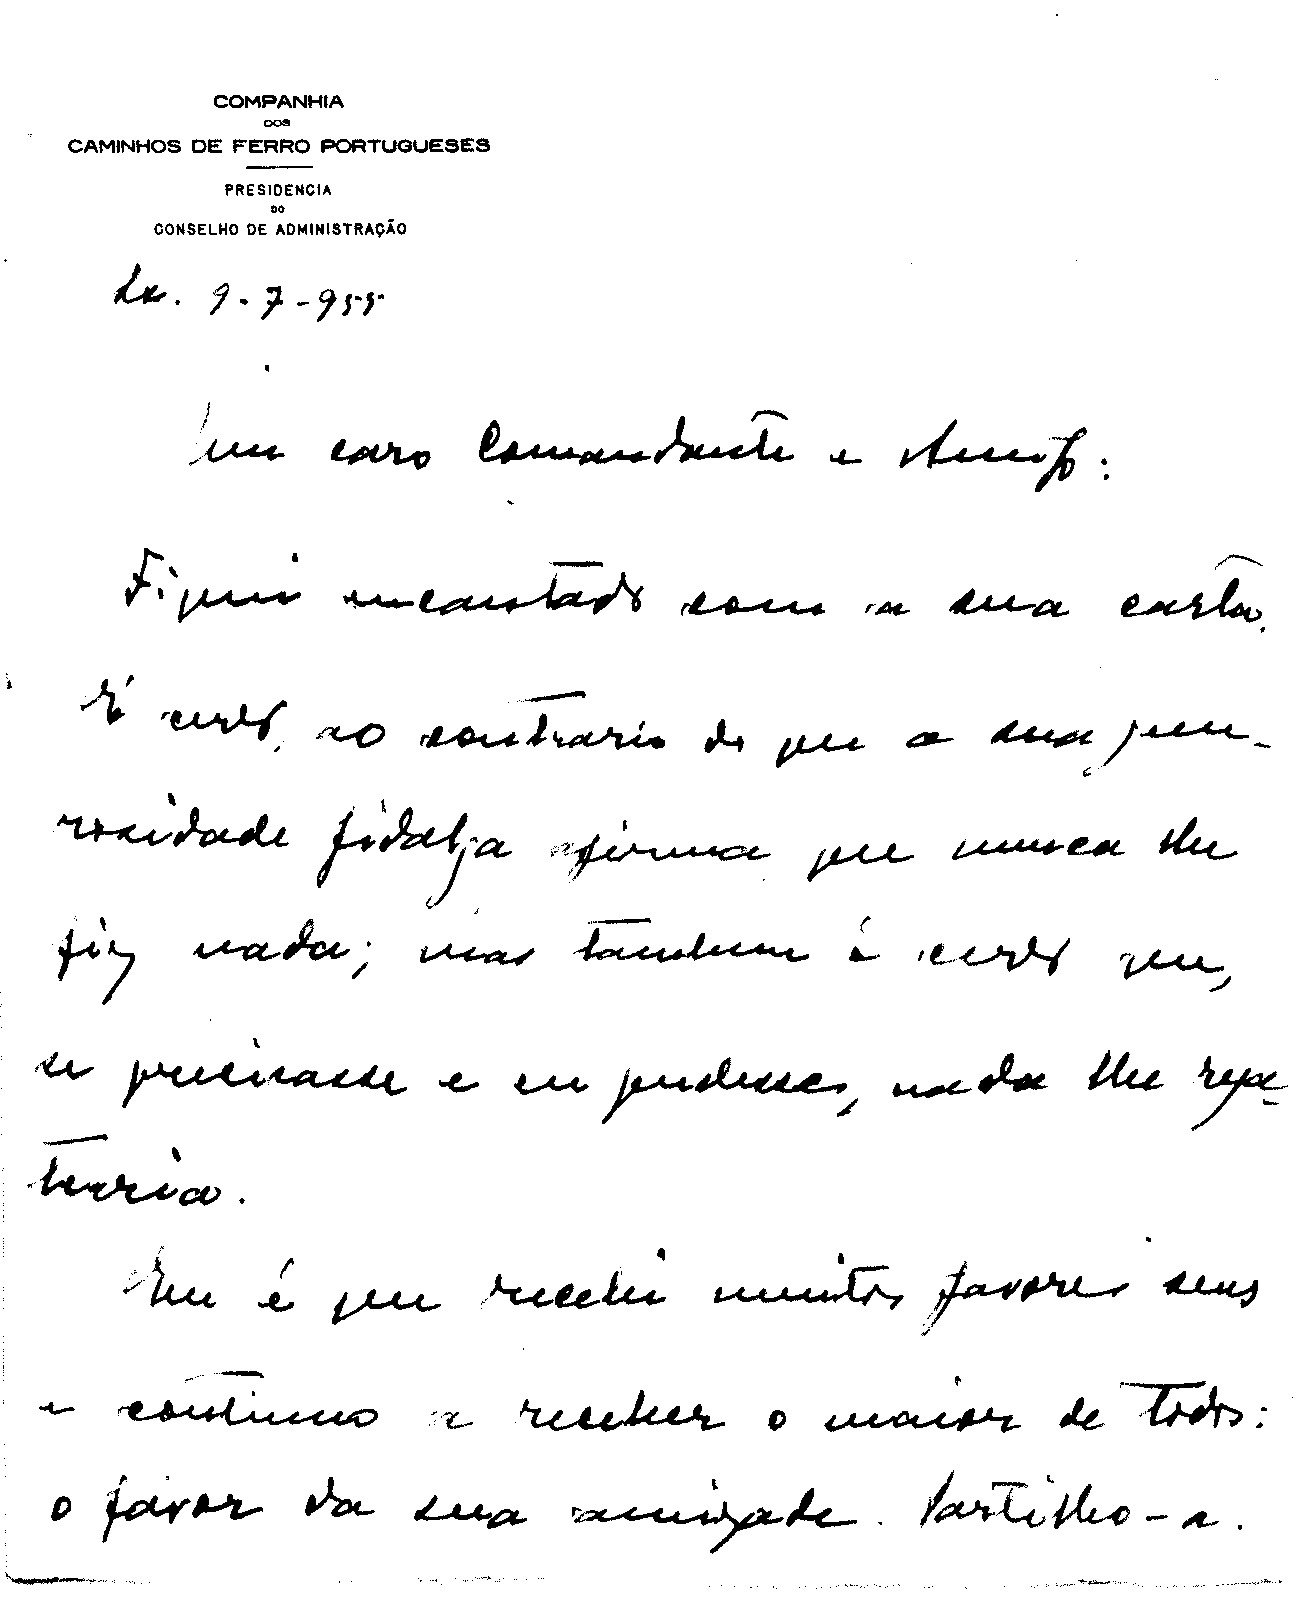 COMPANHIA
DOS
CAMINHOS DE FERRO PORTUGUESES
PRESIDENCIA
DO
CONSELHO DE ADMINISTRAÇÃO
Lx. 9-7-955
Meu caro Comandante e Amigo:
Fiquei encantado com a sua carta.
É certo, ao contrario do que a sua gene-
rosidade fidalga afirma que nunca lhe
fiz nada; mas tambem é certo que,
se precisasse e eu pudesse, nada lhe rega-
tearia.
Eu é que recebi muitos favores seus
e continuo a receber o maior de todos:
o favor da sua amizade. Partilho-a.